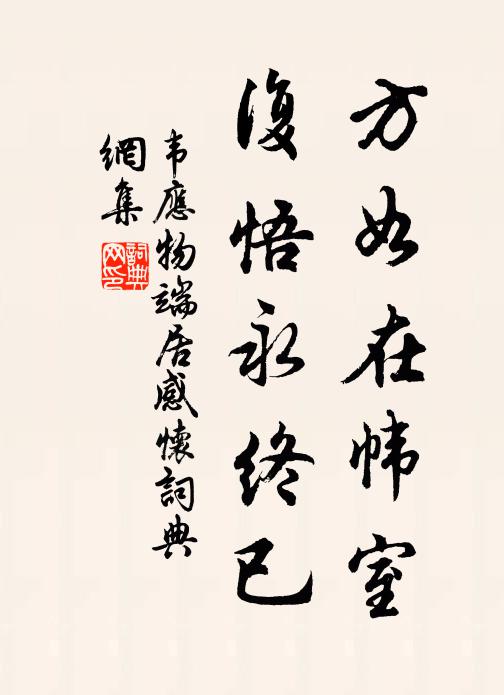 方如在帏室
復悟永终已
韦應物端居感懷詞典
網集
詞典
网印